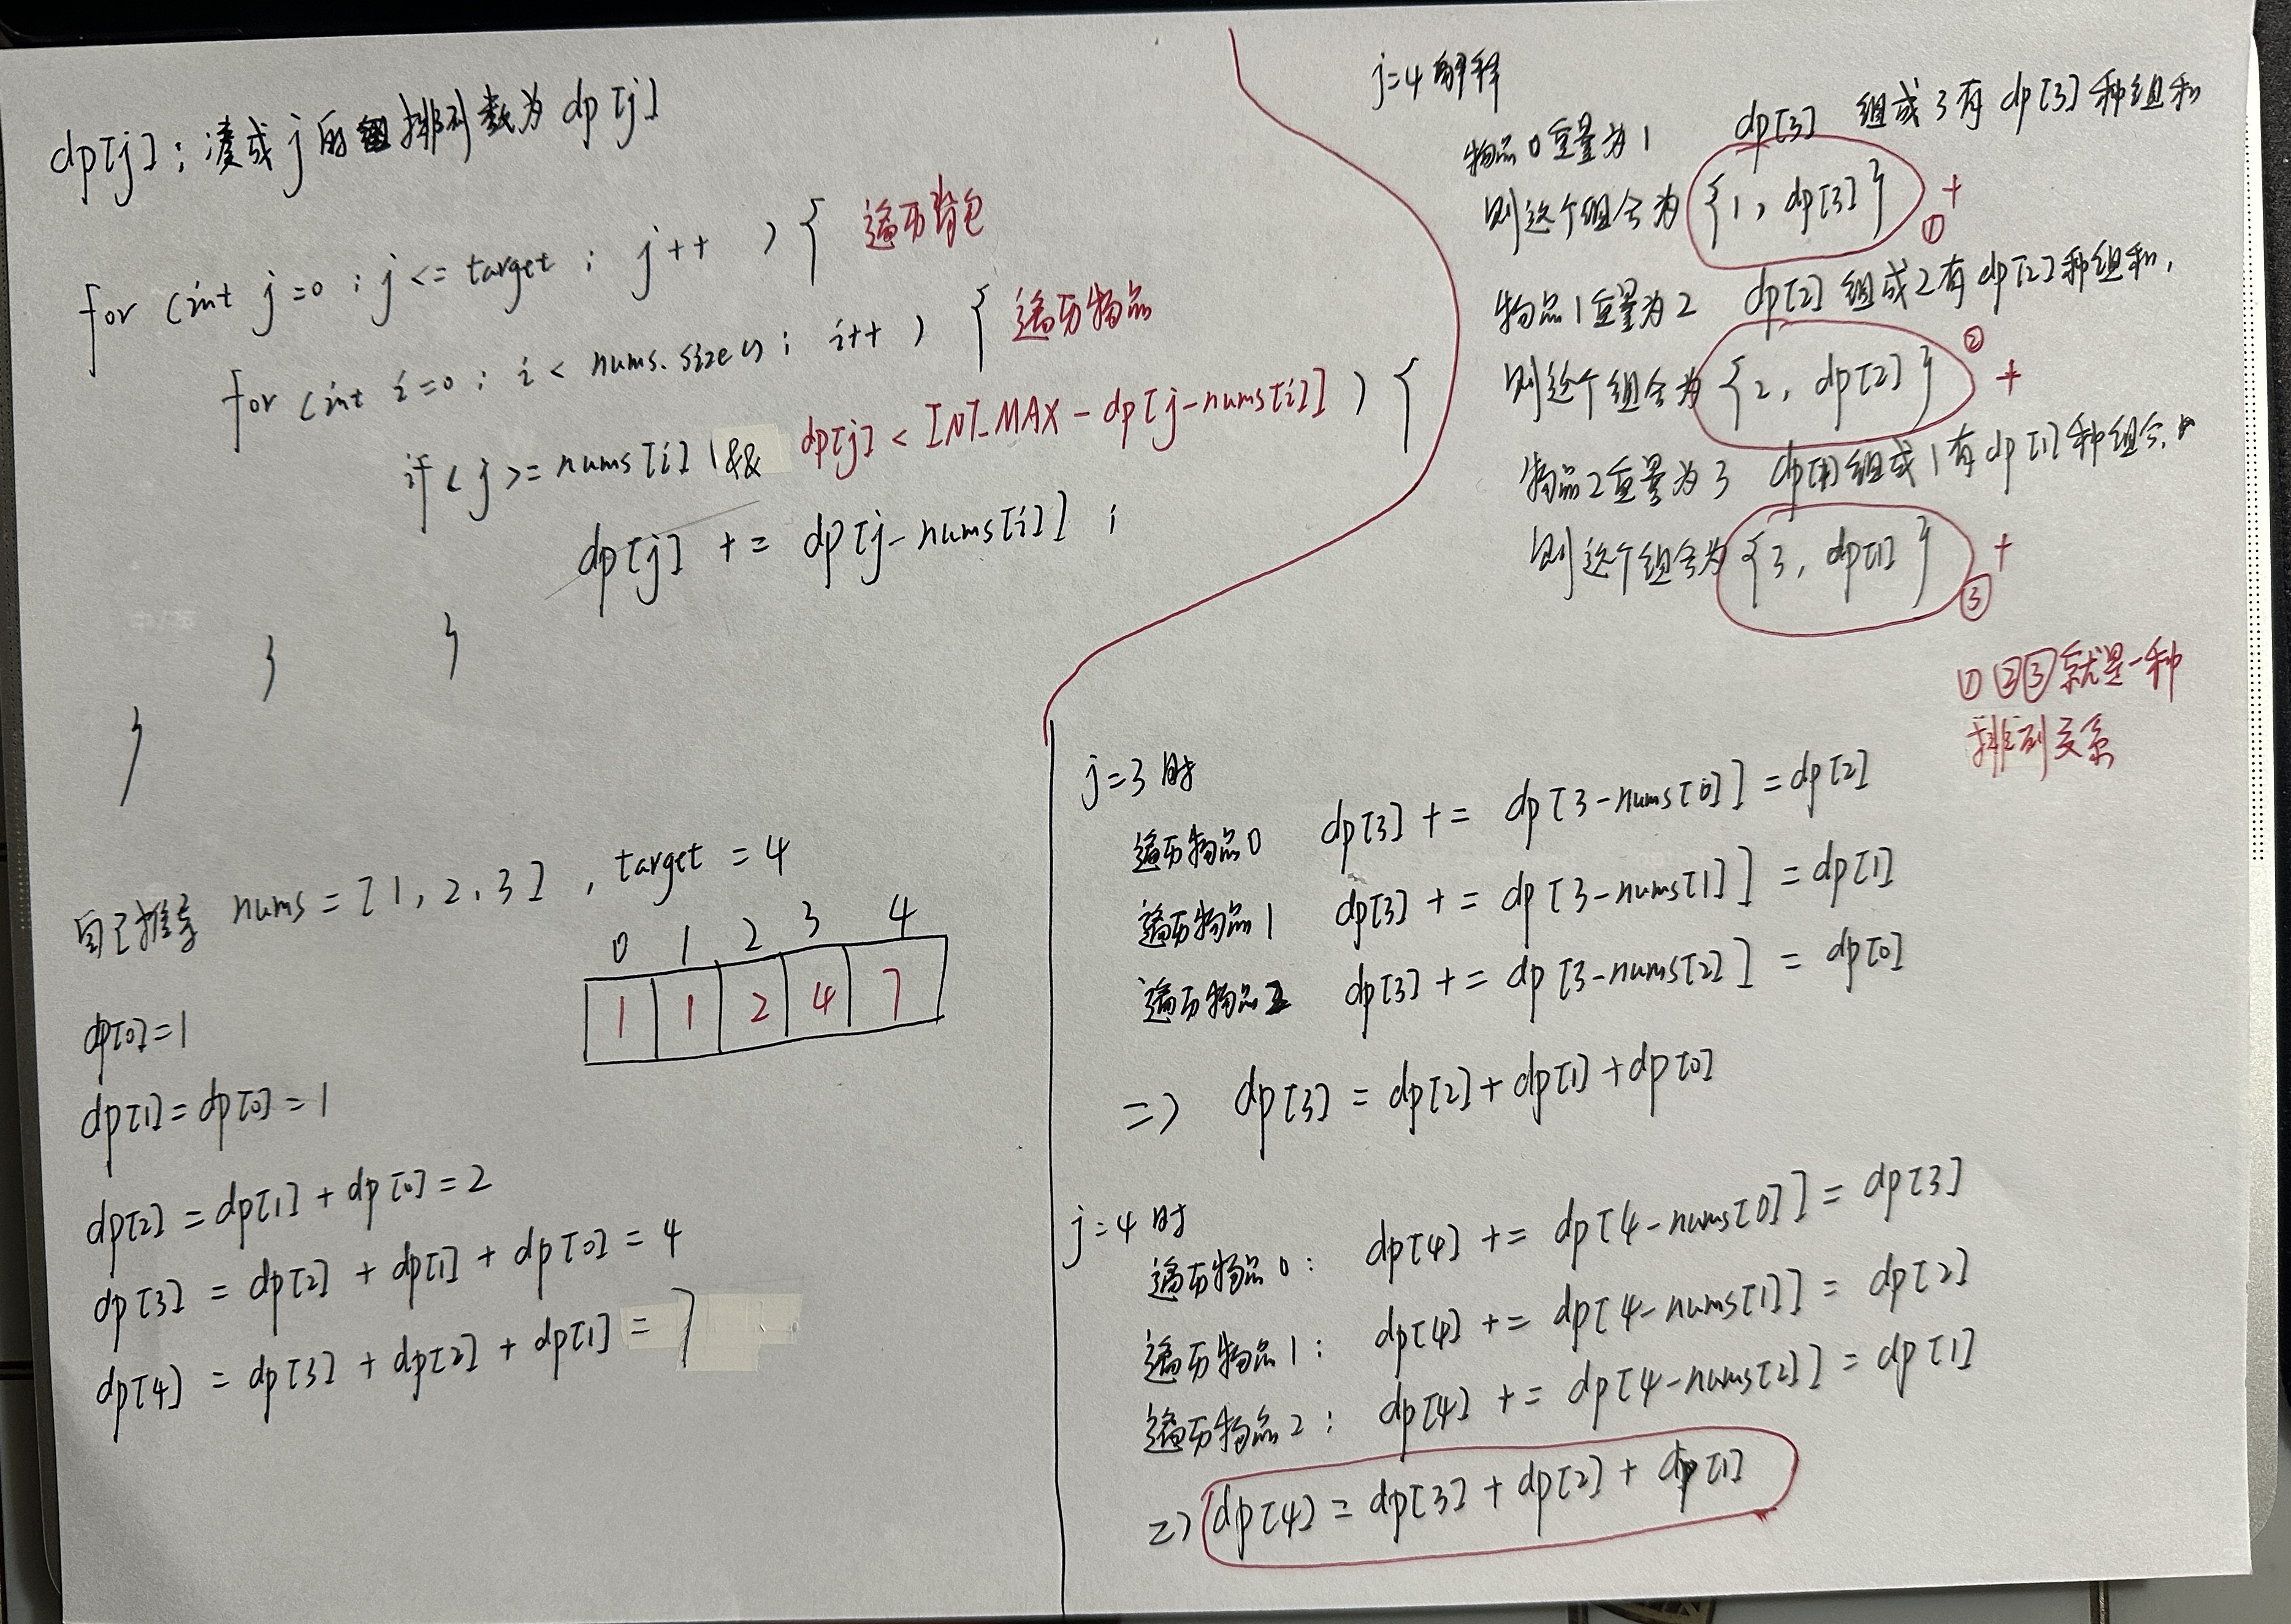 dp[j]：凑成j的排列数为dp[j]
for (int j=0 ; j <= target ; j++ ) { 遍历背包
for (int i=0 ; i < nums.size() ; i++ ) { 遍历物品
if ( j >= nums[i] && dp[j] < INT_MAX - dp[j-nums[i]] ) {
dp[j] += dp[j-nums[i]] ;
}
}
}
自己推导 nums = [1, 2, 3] , target = 4
0 1 2 3 4
1 1 2 4 7
dp[0]=1
dp[1]=dp[0]=1
dp[2]=dp[1]+dp[0]=2
dp[3] = dp[2] + dp[1] + dp[0] = 4
dp[4] = dp[3] + dp[2] + dp[1] = 7
j=4 解释
物品0重量为1 dp[3] 组成3有dp[3]种组和
则这个组合为{1, dp[3]} + ①
物品1重量为2 dp[2] 组成2有dp[2]种组和,
则这个组合为{2, dp[2]} ② +
物品2重量为3 dp[1]组成1有dp[1]种组合,
则这个组合为{3, dp[1]} + ③
①②③就是一种
排列关系
j=3时
遍历物品0 dp[3] += dp[3-nums[0]] = dp[2]
遍历物品1 dp[3] += dp[3-nums[1]] = dp[1]
遍历物品2 dp[3] += dp[3-nums[2]] = dp[0]
=> dp[3] = dp[2]+dp[1]+dp[0]
j=4时
遍历物品0： dp[4] += dp[4-nums[0]] = dp[3]
遍历物品1： dp[4] += dp[4-nums[1]] = dp[2]
遍历物品2： dp[4] += dp[4-nums[2]] = dp[1]
=> dp[4] = dp[3] + dp[2] + dp[1]